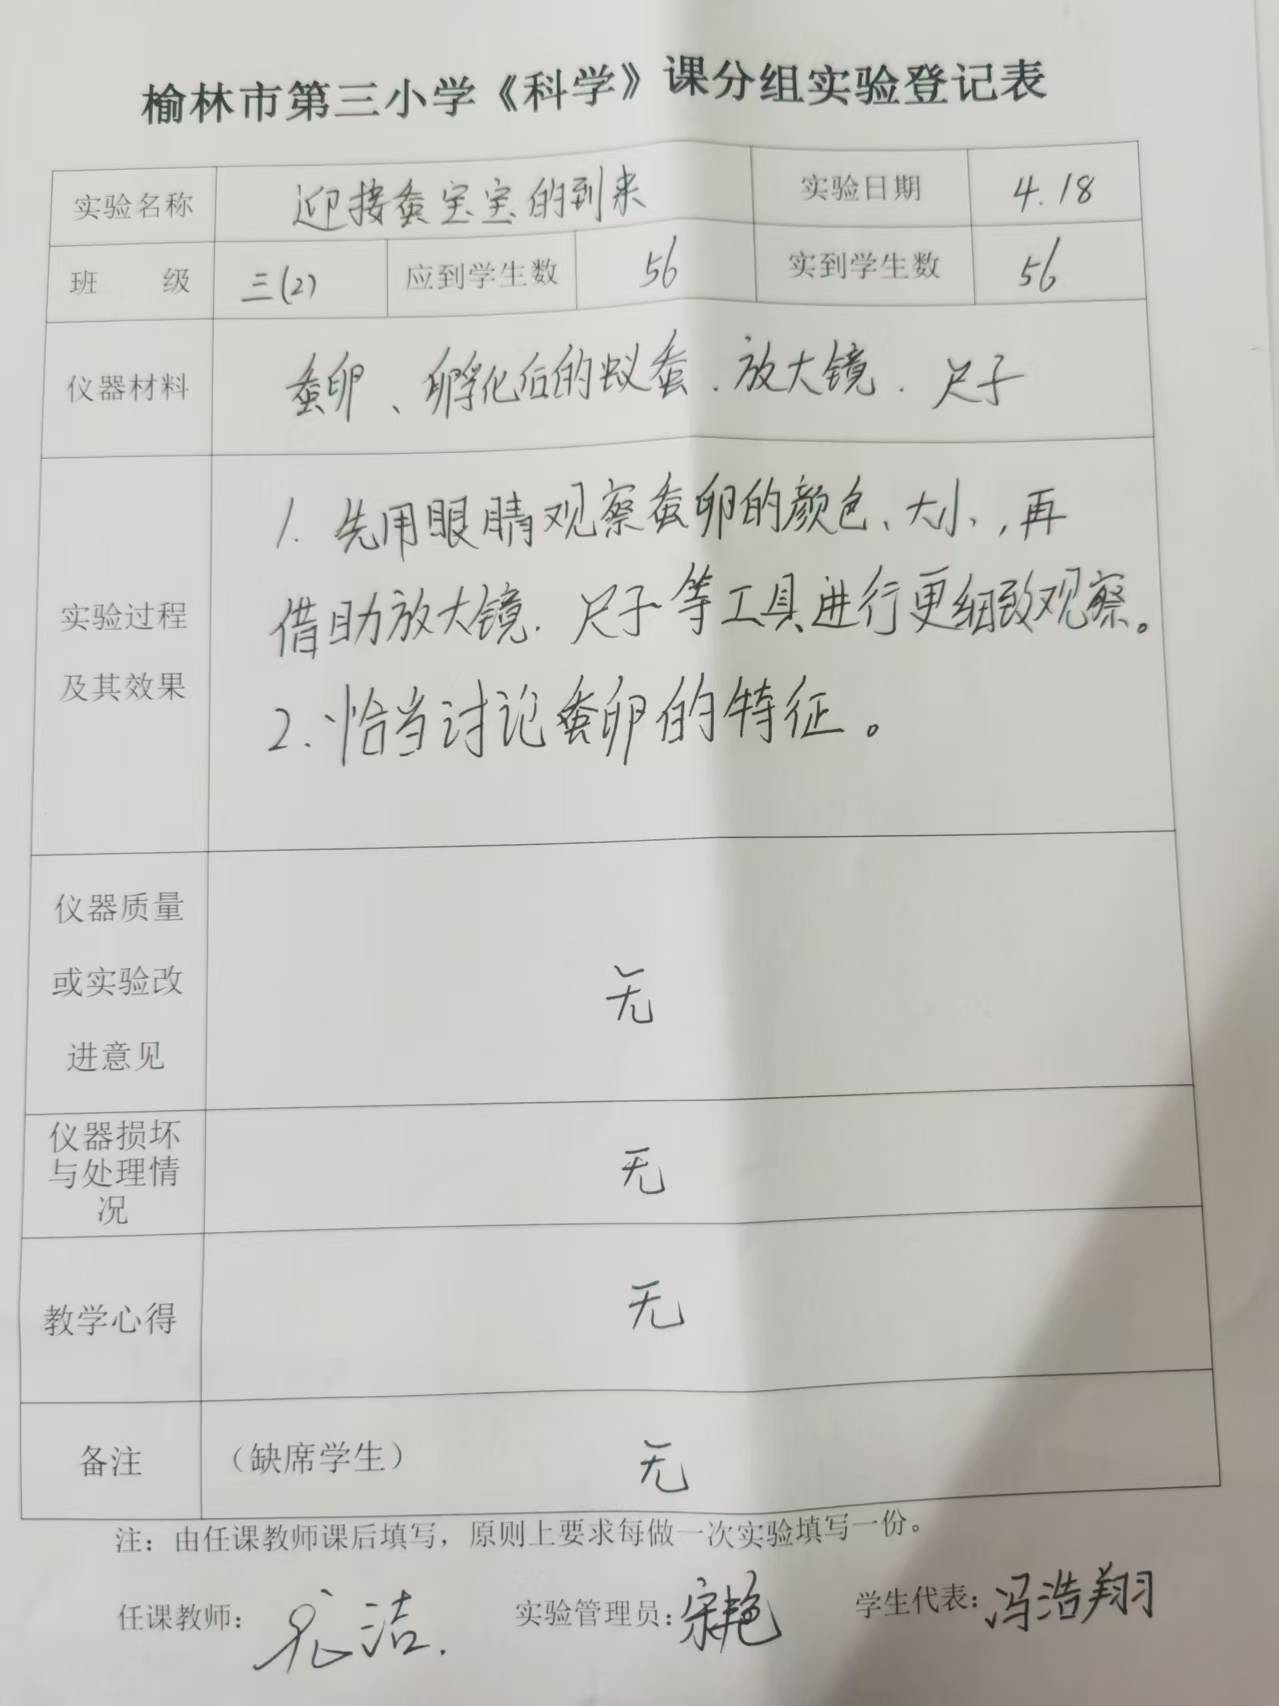 榆林市第三小学《科学》课分组实验登记表
实验名称 迎接蚕宝宝的到来 实验日期 4.18
班 级 三(2) 应到学生数 56 实到学生数 56
仪器材料 蚕卵、孵化后的蚁蚕.放大镜.尺子
1.先用眼睛观察蚕卵的颜色、大小,再
实验过程 借助放大镜.尺子等工具进行更细致观察。
及其效果 2.恰当讨论蚕卵的特征。
仪器质量
或实验改 无
进意见
仪器损坏
与处理情 无
况
教学心得 无
备注 (缺席学生) 无
注:由任课教师课后填写,原则上要求每做一次实验填写一份。
任课教师: 洁. 实验管理员:宋艳 学生代表:冯浩翔